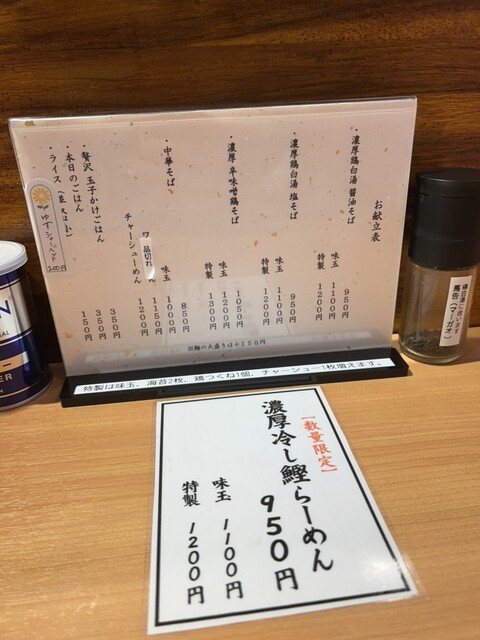 お献立表
・濃厚鶏白湯 醤油そば 950円
味玉 1100円
特製 1200円
・濃厚鶏白湯 塩そば 950円
味玉 1100円
特製 1200円
・濃厚 辛味噌鶏そば 1050円
味玉 1200円
特製 1300円
・中華そば 850円
味玉 1000円
ワ 品切れ 1150円
チャーシューめん 1200円
・贅沢 玉子かけごはん 350円
・本日のごはん 350円
・ライス 150円
ゆずシャーベット
200円
※麺の大盛りは+150円
特製は味玉、海苔2枚、鶏つくね1個、チャーシュー1枚増えます。
馬告(マーガオ)
【数量限定】
濃厚冷し鰹らーめん
950円
味玉 1100円
特製 1200円